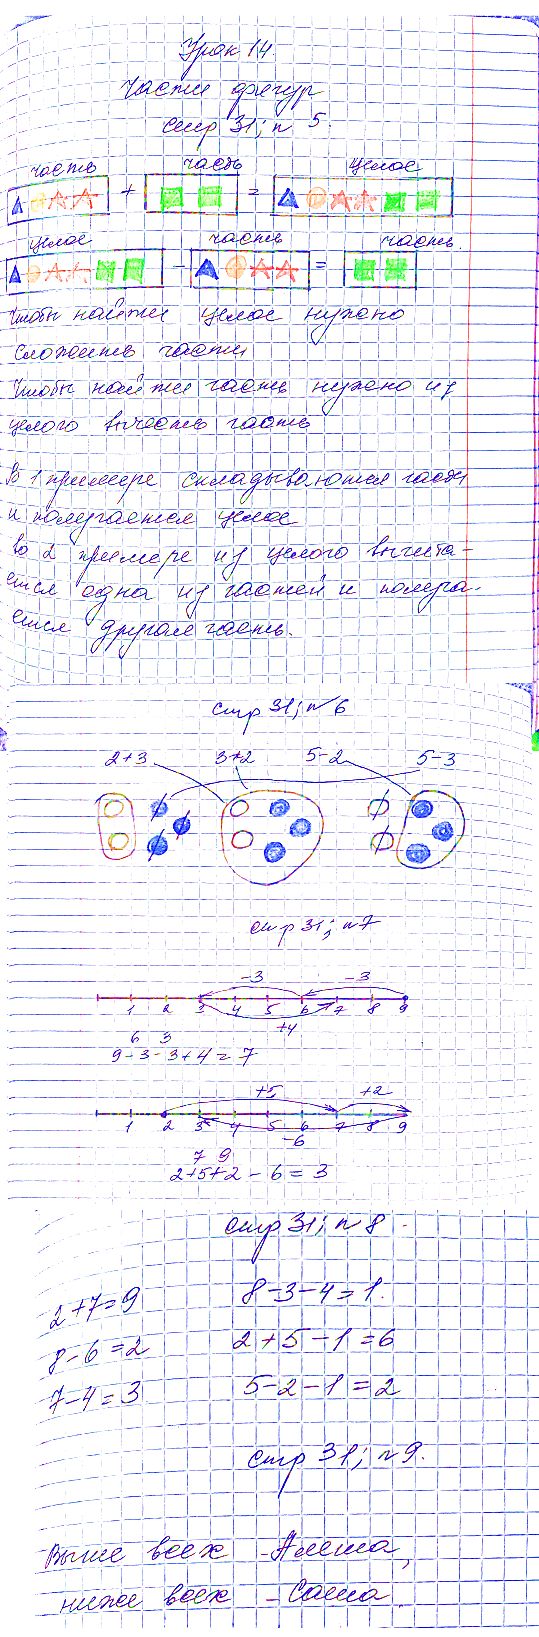 Урок 14.
Части фигур
стр 31; n 5.
часть часть целое
+ =
целое часть часть
- =
Чтобы найти целое нужно
сложить части
Чтобы найти часть нужно из
целого вычесть часть
В 1 примере складываются части
и получается целое
Во 2 примере из целого вычита-
ется одна из частей и получа-
ется другая часть.
стр 31; n 6
2+3 3+2 5-2 5-3
стр 31; n 7
-3 -3
1 2 3 4 5 6 7 8 9
+4
6 3
9-3-3+4=7
+5 +2
1 2 3 4 5 6 7 8 9
-6
7 9
2+5+2-6=3
стр 31; n 8
2+7=9 8-3-4=1.
8-6=2 2+5-1=6
7-4=3 5-2-1=2
стр 31; n 9.
Выше всех - Алеша,
ниже всех - Саша.